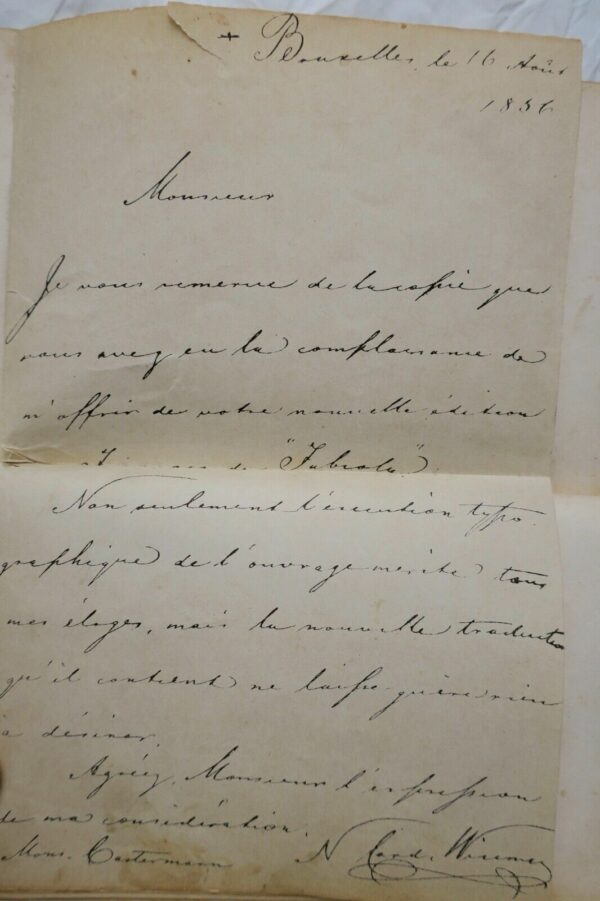 + Bruxelles, le 16 Août
1856
Monsieur
Je vous remercie de la copie que
vous avez eu la complaisance de
m'offrir de votre nouvelle édition
"Fabiola"
Non seulement l'exécution typo-
graphique de l'ouvrage mérite tous
mes éloges, mais la nouvelle traduction
qu'il contient ne laisse guère rien
à désirer.
Agréez, Monsieur l'expression
de ma considération.
Mons. Castermann N Card. Wiseman